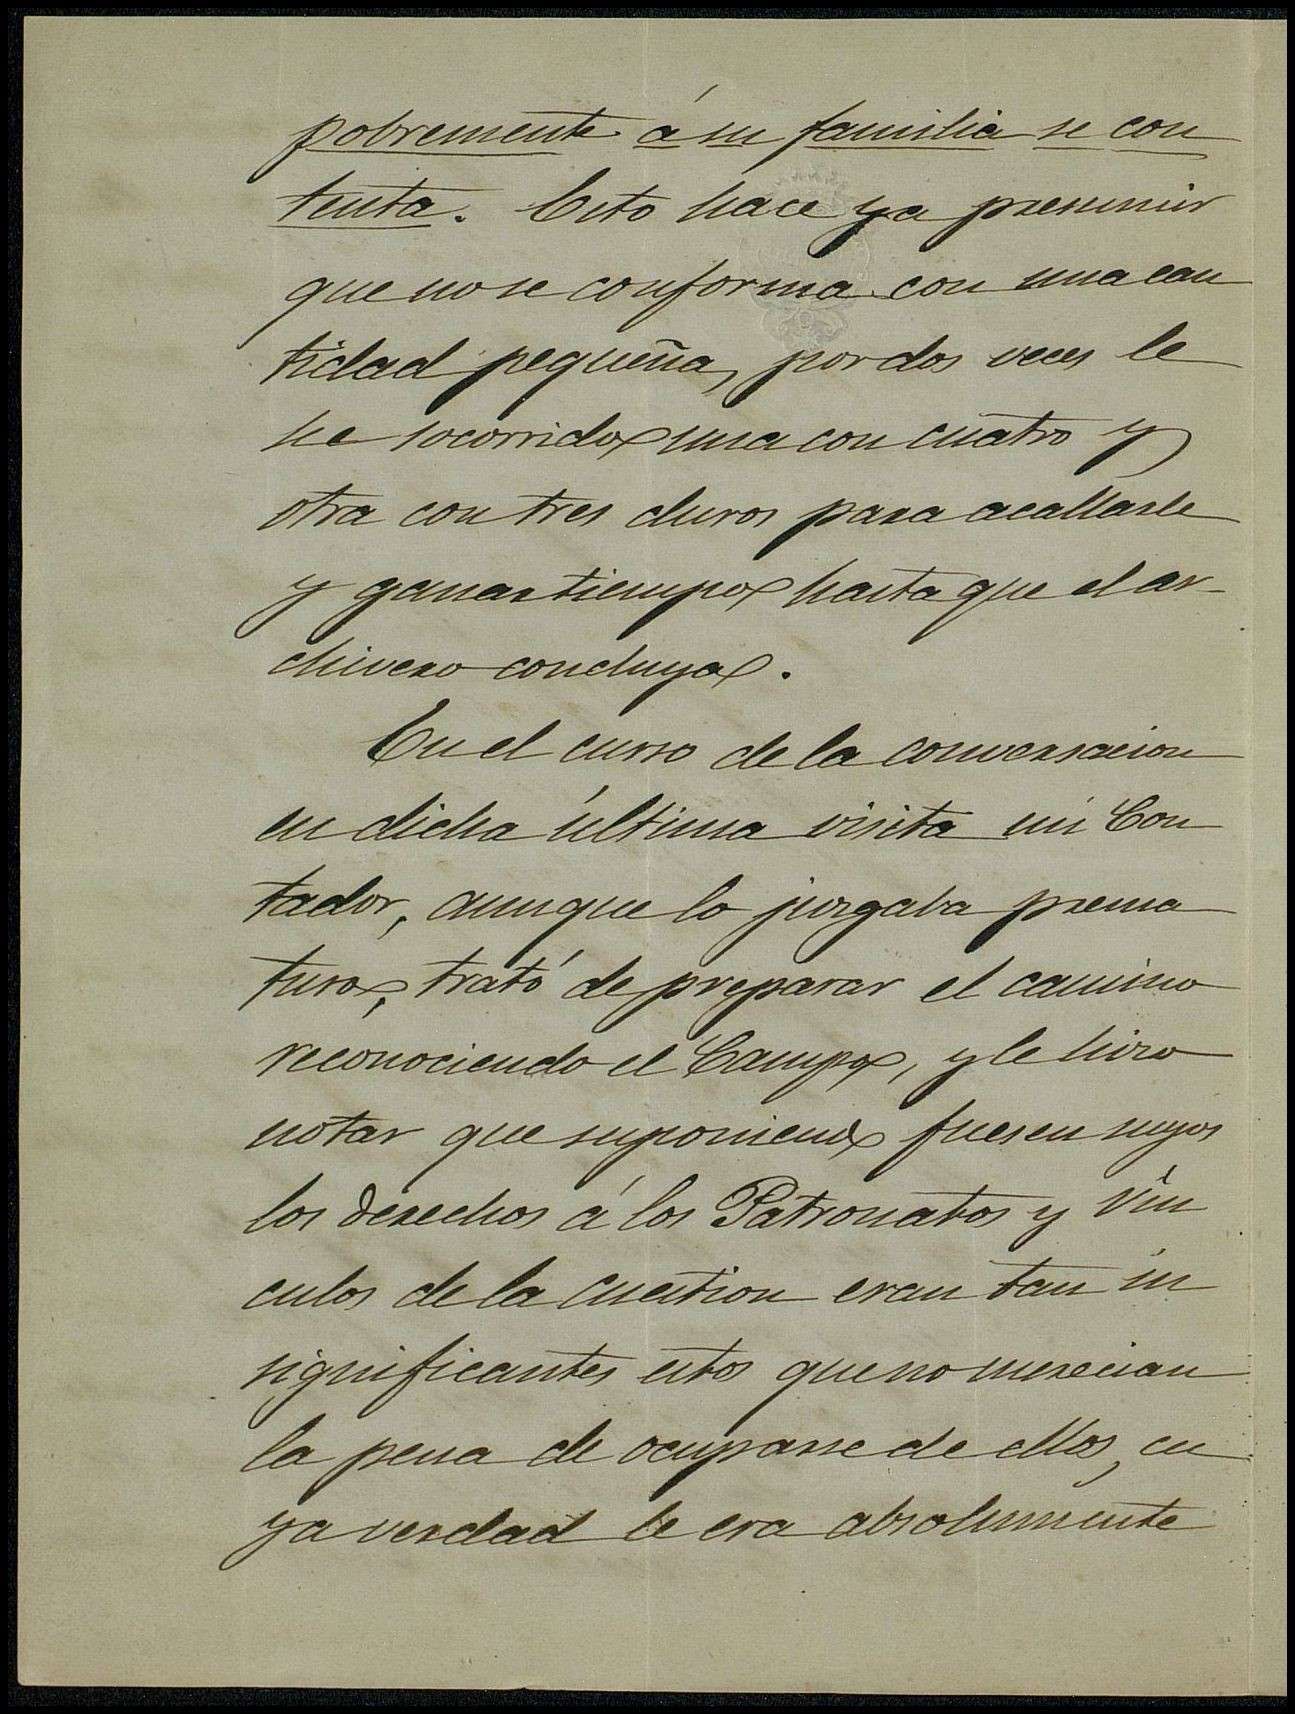 pobremente á su familia se con
tenta. Esto hace ya presumir
que no se conforma con una can
tidad pequeña, por dos veces le
he socorrido una con cuatro y
otra con tres duros para acallarle
y ganar tiempo hasta que el ar-
chivero concluya.
En el curso de la conversacion
en dicha última visita mi Con
tador, aunque lo juzgaba prema
turo, trató de preparar el camino
reconociendo el Campo, y le hizo
notar que suponiendo fuesen suyos
los derechos á los Patronatos y Vin
culos de la cuestion eran tan in
significantes estos que no merecian
la pena de ocuparse de ellos, cu
ya verdad le era absolumente